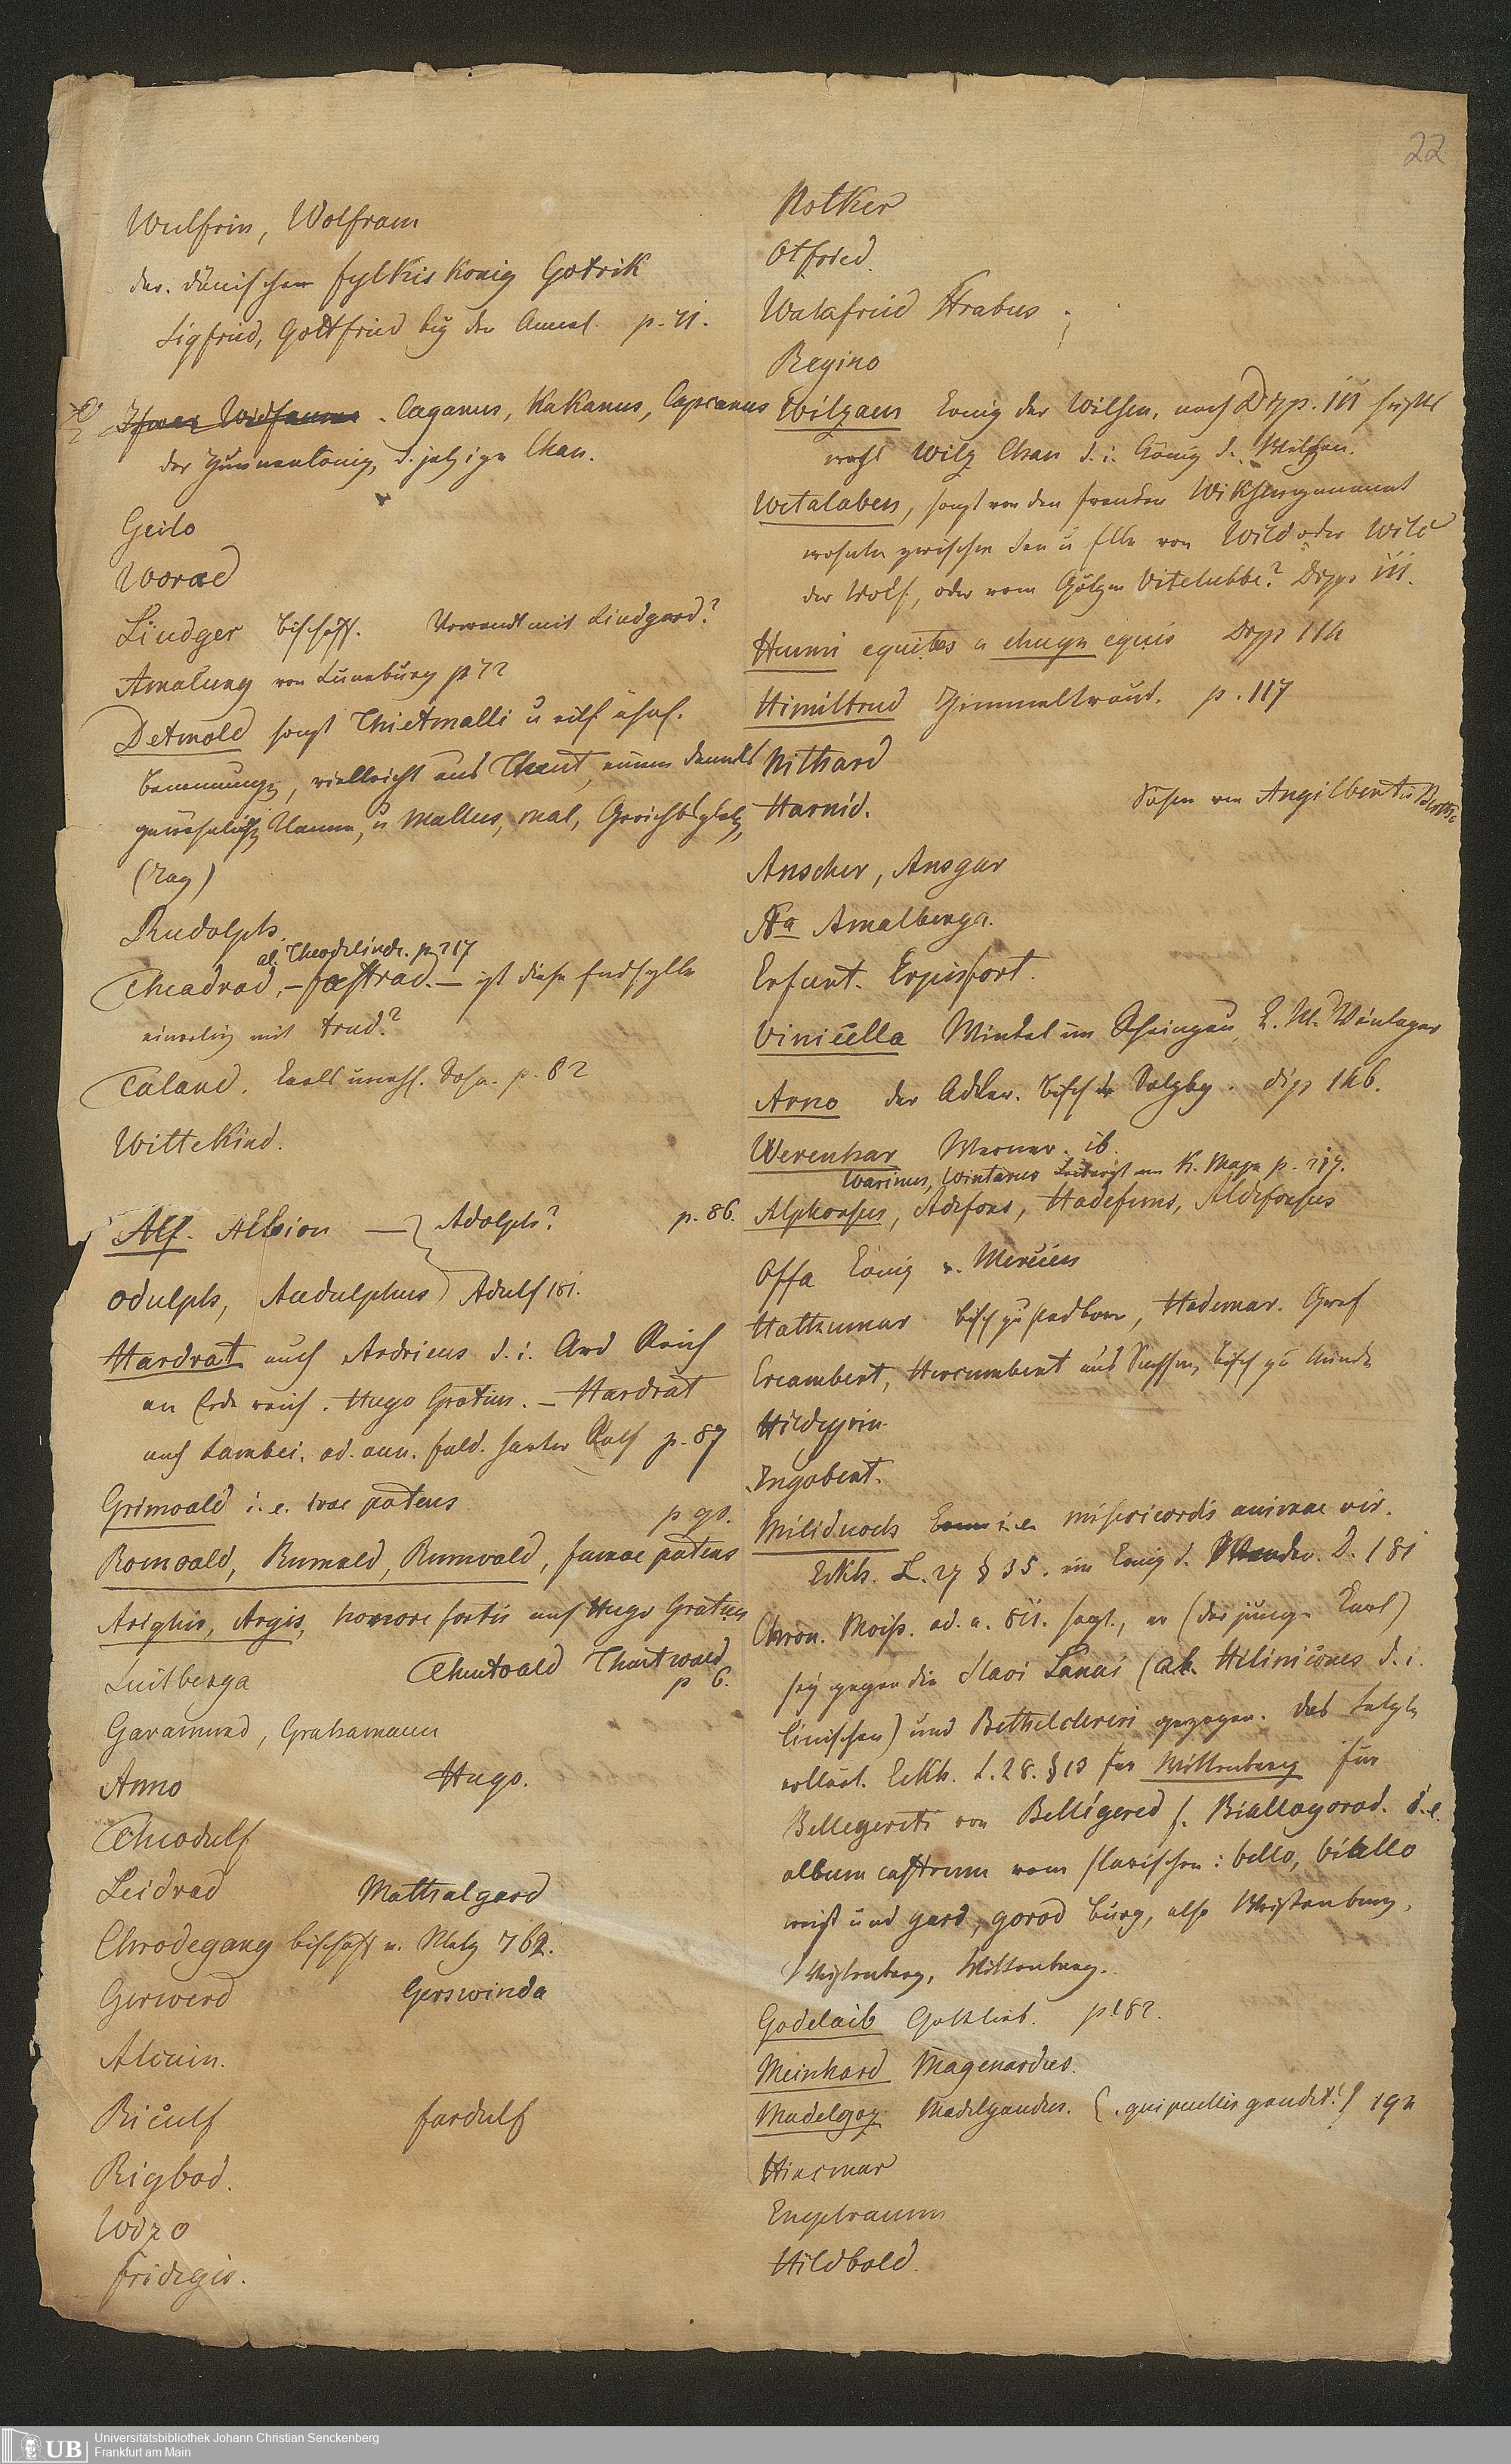 22
Wulfrin, Wolfram
der dänischen Fylkis König Gotrik
Sigfried, Gottfried bey den Annal. p. 71.
Caganus, Kakanus, Capcanus
der Hunnenkönig, d. jetzige Chan.
Geilo
Worad
Liudger Bischoff. Verwandt mit Liudgard?
Amalung von Lüneburg p 72
Detmold sonst Thietmalli u
Benennung, vielleicht aus Theut, einem damals
gewöhnlichen Namen, u mallus, mal, Gerichtsplatz,
Rudolph.
al. Theodelinde. p. 217
Theadrad, – Fastrad. – ist diese Endsylbe
einerley mit trud?
Taland. Carls unehl. Sohn. p. 82
Wittekind.
Alf. Albion — Adolph? p. 86.
Odulph, Audulphus Adulf 181.
Hardrat auch Ardricus d. i. Ard Reich
an Erde reich. Hugo Grotius. – Hardrat
nach Lambec. ad. ann. fuld. harter Rath p. 87
Grimoald i. e. irae potens p 90.
Romoald, Rumald, Rumoald, famae potens
Arighis, Argis, honore fortis nach Hugo Grotius
Luitberga Theutwald Thuitwald
p 6.
Garamund, Grahamann
Anno Hugo.
Theodulf
Leidrad Mathalgard
Chrodegang Bischoff v. Metz 762.
Gerwerd Gerswinda
Alcuin.
Riculf Fardulf
Rigbod.
Wozo
Fridegis.
Notker
Otfried.
Walafried Strabus
Regino
Wilzaen König der Wilsen, nach Dipp. 111 heißt
wohl Wilz Chan d. i. König d. Wilzen.
Wetalaben, sonst von den Franken Wilsen genannt
wohnten zwischen der u Elbe von Wild oder Wilc
der Wolf, oder vom Götzen Vitelubbe? Dipp. 111.
Hunni equites a chuyn equis Dipp 114
Himiltrud Himmeltraut. p. 117
Nithard
Harnid. Söhne von Angilbert u Bertha
Anscher, Ansgar
Sta Amalberga.
Erfurt. Erpisfort.
Vinicella Winkel im Rheingau, K. M. Weinlager
Arno der Adler. Bisch. v. Salzbg. Dip 146.
Werenhar Werner. ib.
Warinus, Wintarus Leibarzt von K. Magn p. 217.
Alphonsus, Adefons, Hadefuns, Aldefonsus
Offa König v. Mercien
Hathumar Bisch zu Padborn, Hadumar. Graf
Ercambert, Hercumbert aus Sachsen, Bisch zu Minden
Hildegrin.
Ingobert.
Miliduoch i.e. misericordis animae vir.
Eckh. L. 27 § 35. ein König d. Wenden. D. 181
Chron. Moiss. ad. a. 811. sagt, er (der junge Karl)
sey gegen die Slavi Lanai (al. Hilinicones d. i.
Linischen) und Bethelclereri gezogen. Das letzte
erklärt Eckh. L. 28. § 13 für Wittenburg für
Bellegereti von Belligered s. Biallogorod. i. e.
album castrum vom slavischen: bello, biallo
weiß und gard, gorod Burg, also Weissenburg,
Weissenburg, Wittenburg.
Godelaib Gottlieb. p 182.
Meinhard Magenardus.
Madelgoz Madelgaudus. (qui puellis gaudet!) 192
Hincmar
Engelramm
Hildbold.
Universitätsbibliothek Johann Christian Senckenberg
Frankfurt am Main
UB